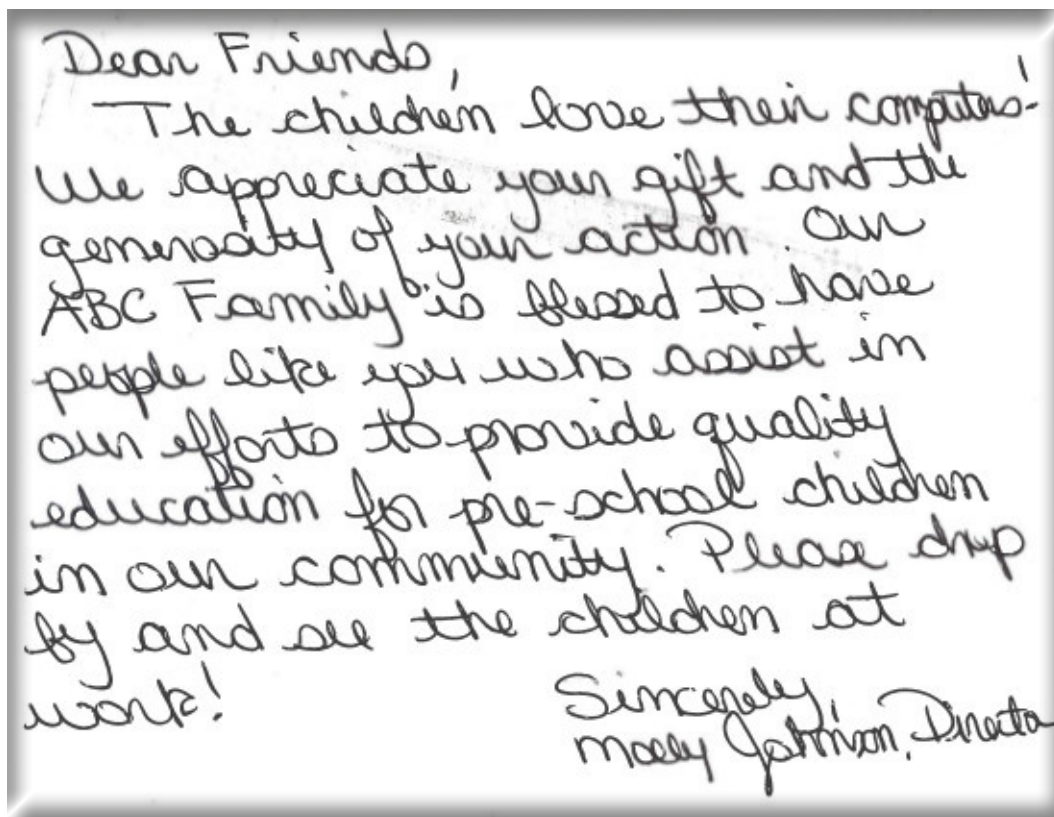 Dear Friends,
The children love their computers!
We appreciate your gift and the
generosity of your action. Our
ABC Family is blessed to have
people like you who assist in
our efforts to provide quality
education for pre-school children
in our community. Please drop
by and see the children at
work!
Sincerely,
Molly Johnson, Director